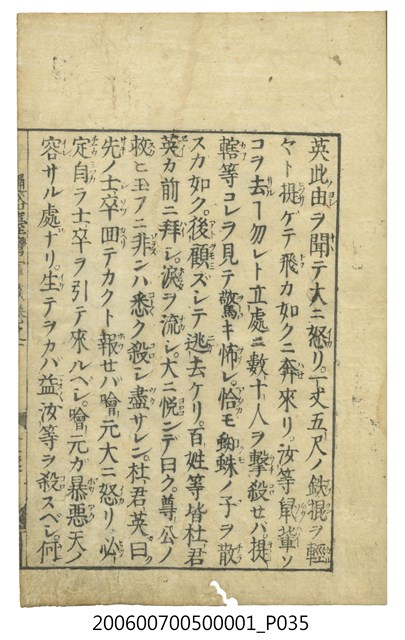 英此由ヲ聞テ大ニ怒リ。一丈五尺ノ鉄棍ヲ軽
々ト提ゲテ飛カ如クニ奔來リ。汝等鼠輩ソ
コヲ去ヿ勿レト立處ニ數十人ヲ撃殺セバ提
轄等コレヲ見テ驚キ怖レ。恰モ蜘蛛ノ子ヲ散
スカ如ク。後顧ズシテ逃去ケリ。百姓等皆杜君
英カ前ニ拜シ。淚ヲ流シ。大ニ悦ンデ曰ク。尊公ノ
救ヒ玉フニ非ンハ悉ク殺シ盡サレン。杜君英曰ク
先ノ士卒回テカクト報セバ噲元大ニ怒リ必
定自ラ士卒ヲ引テ來ルベシ。噲元ガ暴悪天ノ
容サル處ナリ。生テヲカバ益汝等ヲ殺スベシ。何
200600700500001_P035